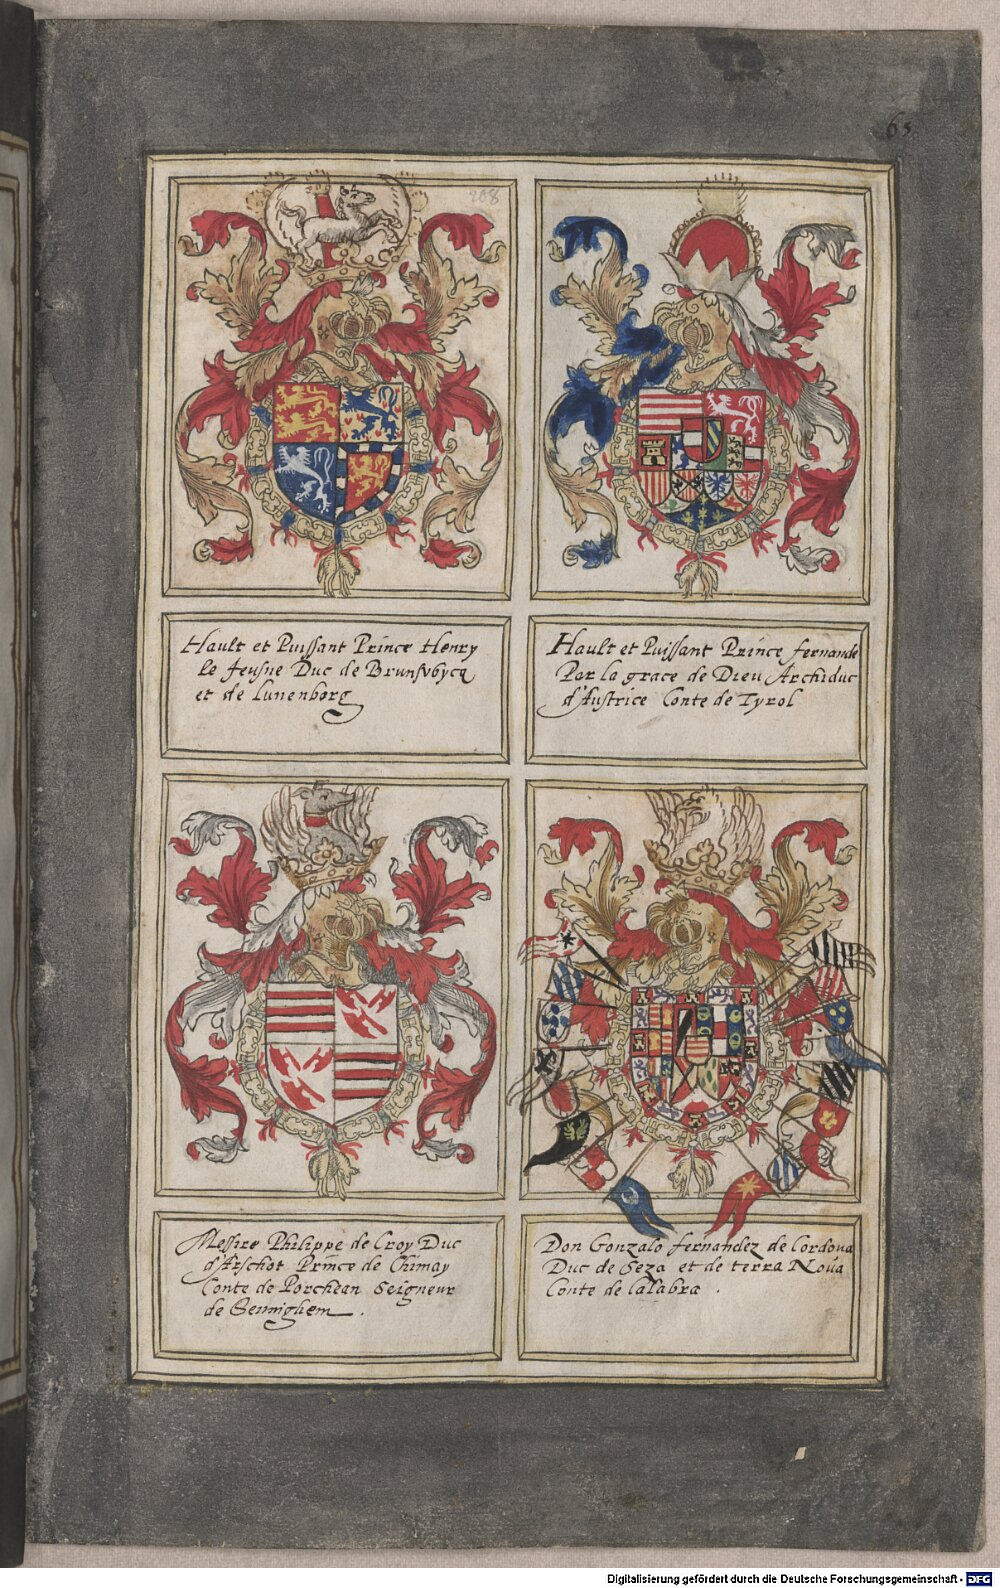 65
268
Hault et Puissant Prince Henry
le Jeusne Duc de Brunsvbycq
et de Lunenborg
Hault et Puissant Prince fernande
Par la grace de Dieu Archiduc
d'Austrice Conte de Tyrol
Messire Philippe de Croy Duc
d'Arschot Prince de Chimay
Conte de Porchean Seigneur
de Sennighem.
Don Gonzalo fernandez de Cordoua
Duc de Seza et de terra Noua
Conte de Calabra.
Digitalisierung gefördert durch die Deutsche Forschungsgemeinschaft - DFG